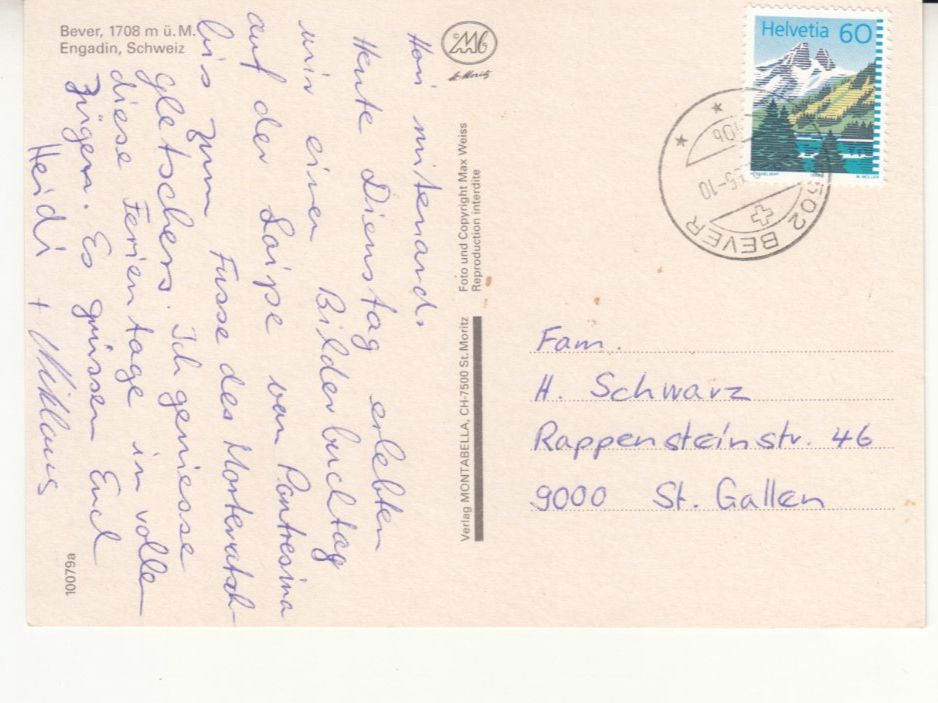 Bever, 1708 m ü. M.
Engadin, Schweiz
Hoi mitenand.
Heute Dienstag erlebten
wir einen Bilderbuchtag
auf der Loipe von Pontresina
bis zum Fusse des Morteratsch-
gletschers. Ich geniesse
diese Ferientage in vollen
Zügen. Es grüssen Euch
Heidi + Niklaus
10079a
MAB
St. Moritz
Foto und Copyright Max Weiss
Reproduction interdite
Verlag MONTABELLA, CH-7500 St. Moritz
Helvetia 60
7502 BEVER
Fam.
H. Schwarz
Rappensteinstr. 46
9000 St. Gallen